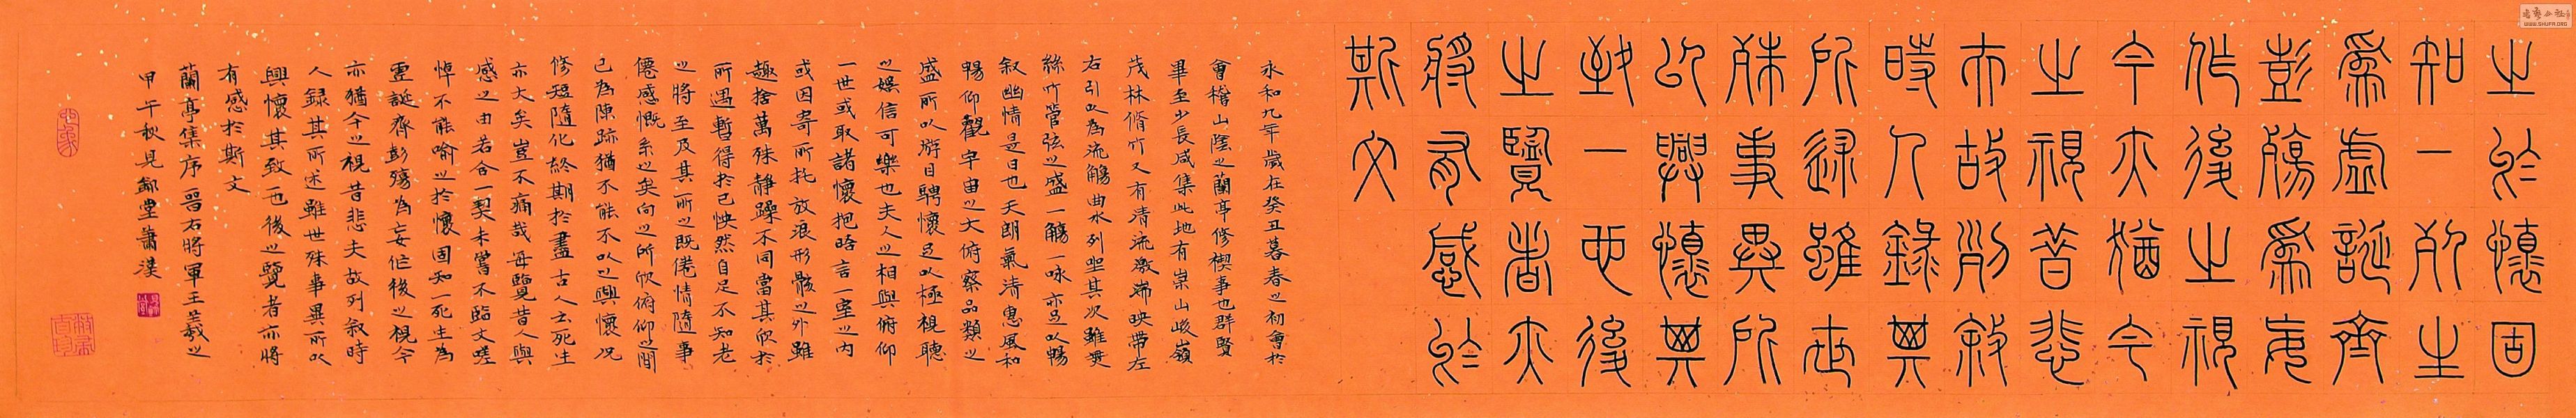 之於懷固
知一死生
為虛誕齊
彭殤為妄
作後之視
今亦猶今
之視昔悲
夫故列敘
時人錄其
所述雖世
殊事異所
以興懷其
致一也後
之覽者亦
將有感於
斯文
永和九年歲在癸丑暮春之初會於
會稽山陰之蘭亭修禊事也群賢
畢至少長咸集此地有崇山峻嶺
茂林脩竹又有清流激湍映帶左
右引以為流觴曲水列坐其次雖無
絲竹管弦之盛一觴一咏亦足以暢
叙幽情是日也天朗氣清惠風和
暢仰觀宇宙之大俯察品類之
盛所以游目騁懷足以極視聽
之娛信可樂也夫人之相與俯仰
一世或取諸懷抱晤言一室之內
或因寄所托放浪形骸之外雖
趣捨萬殊靜躁不同當其欣於
所遇暫得於己怏然自足不知老
之將至及其所之既倦情隨事
僊感慨系之矣向之所欣俯仰之間
已為陳跡猶不能不以之興懷況
修短隨化終期於盡古人云死生
亦大矣豈不痛哉每覽昔人興
感之由若合一契未嘗不臨文嗟
悼不能喻之於懷固知一死生為
虛誕齊彭殤為妄作後之視今
亦猶今之視昔悲夫故列敘時
人錄其所述雖世殊事異所以
興懷其致一也後之覽者亦將
有感於斯文
蘭亭集序晉右將軍王羲之
甲午秋見鄉堂蕭漢
WWW.SHUFA.ORG